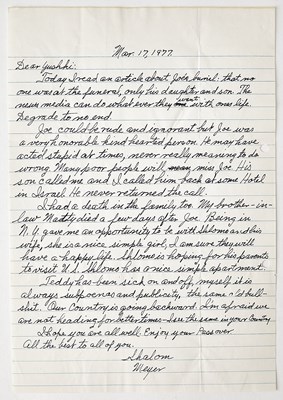 Mar. 17, 1977.
Dear Yushki:
Today I read an article about Joe's burial: that no
one was at the funeral, only his daughter and son. The
news media can do what ever they want with one life.
Degrade to no end.
Joe could be rude and ignorant but Joe was
a very honorable kind hearted person. He may have
acted stupid at times, never really meaning to do
wrong. Many poor people will miss Joe. His
son called me and I called him back at some Hotel
in Israel. He never returned the call.
I had a death in the family, too. My brother-in-
law Matty died a few days after Joe. Being in
N.Y. gave me an opportunity to be with Shlomo and his
wife, she is a nice, simple girl, I am sure they will
have a happy life. Shlomo is hoping for his parents
to visit U.S. Shlomo has a nice simple apartment.
Teddy has been sick on and off, myself it is
always subpoenas and publicity, the same old bull-
shit. Our Country is going backward. I'm afraid we
are not heading for better times - I see the same in your Country
I hope you are all well. Enjoy your Passover
All the best to all of you.
Shalom
Meyer